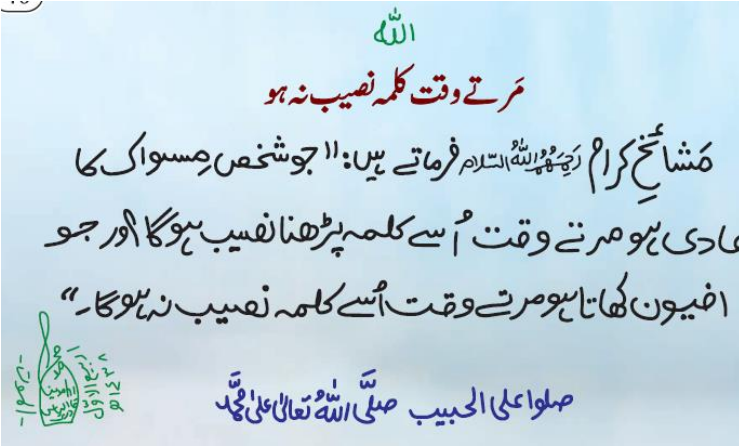 اللہ
مَرتے وقت کلمہ نصیب نہ ہو
مَشائخِ کرام رَحِمَهُمُ اللهُ السَّلَام فرماتے ہیں: "جو شخص مِسواک کا
عادی ہو مرتے وقت اُسے کلمہ پڑھنا نصیب ہوگا اور جو
افیون کھاتا ہو مرتے وقت اُسے کلمہ نصیب نہ ہوگا۔"
صلوا علی الحبیب صلَّی اللهُ تعالیٰ علیٰ محمَّد